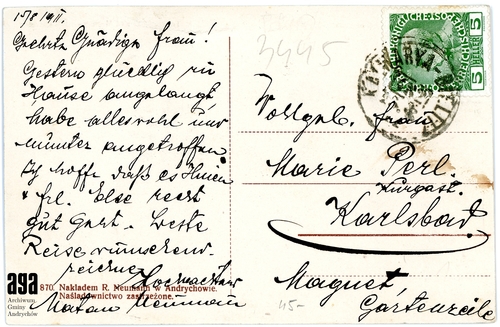 15/8 1911.
Geehrte Gnädige Frau!
Gestern glücklich zu
Hause angelangt,
habe alles wohl und
munter angetroffen
Ich hoffe daß es Ihnen
& frl. Else recht
gut geht. Beste
Reise wünschend
zeichne
Hochachtend
Natan Neumann
3445
Wohlgeb. Frau
Marie Perl.
Kurgast.
Karlsbad
Magnet
Gartenzeile
45-
5 HELLER 5
870. Nakładem R. Neumann w Andrychowie.
Naśladownictwo zastrzeżone.
aga
Archiwum
Gminy
Andrychów